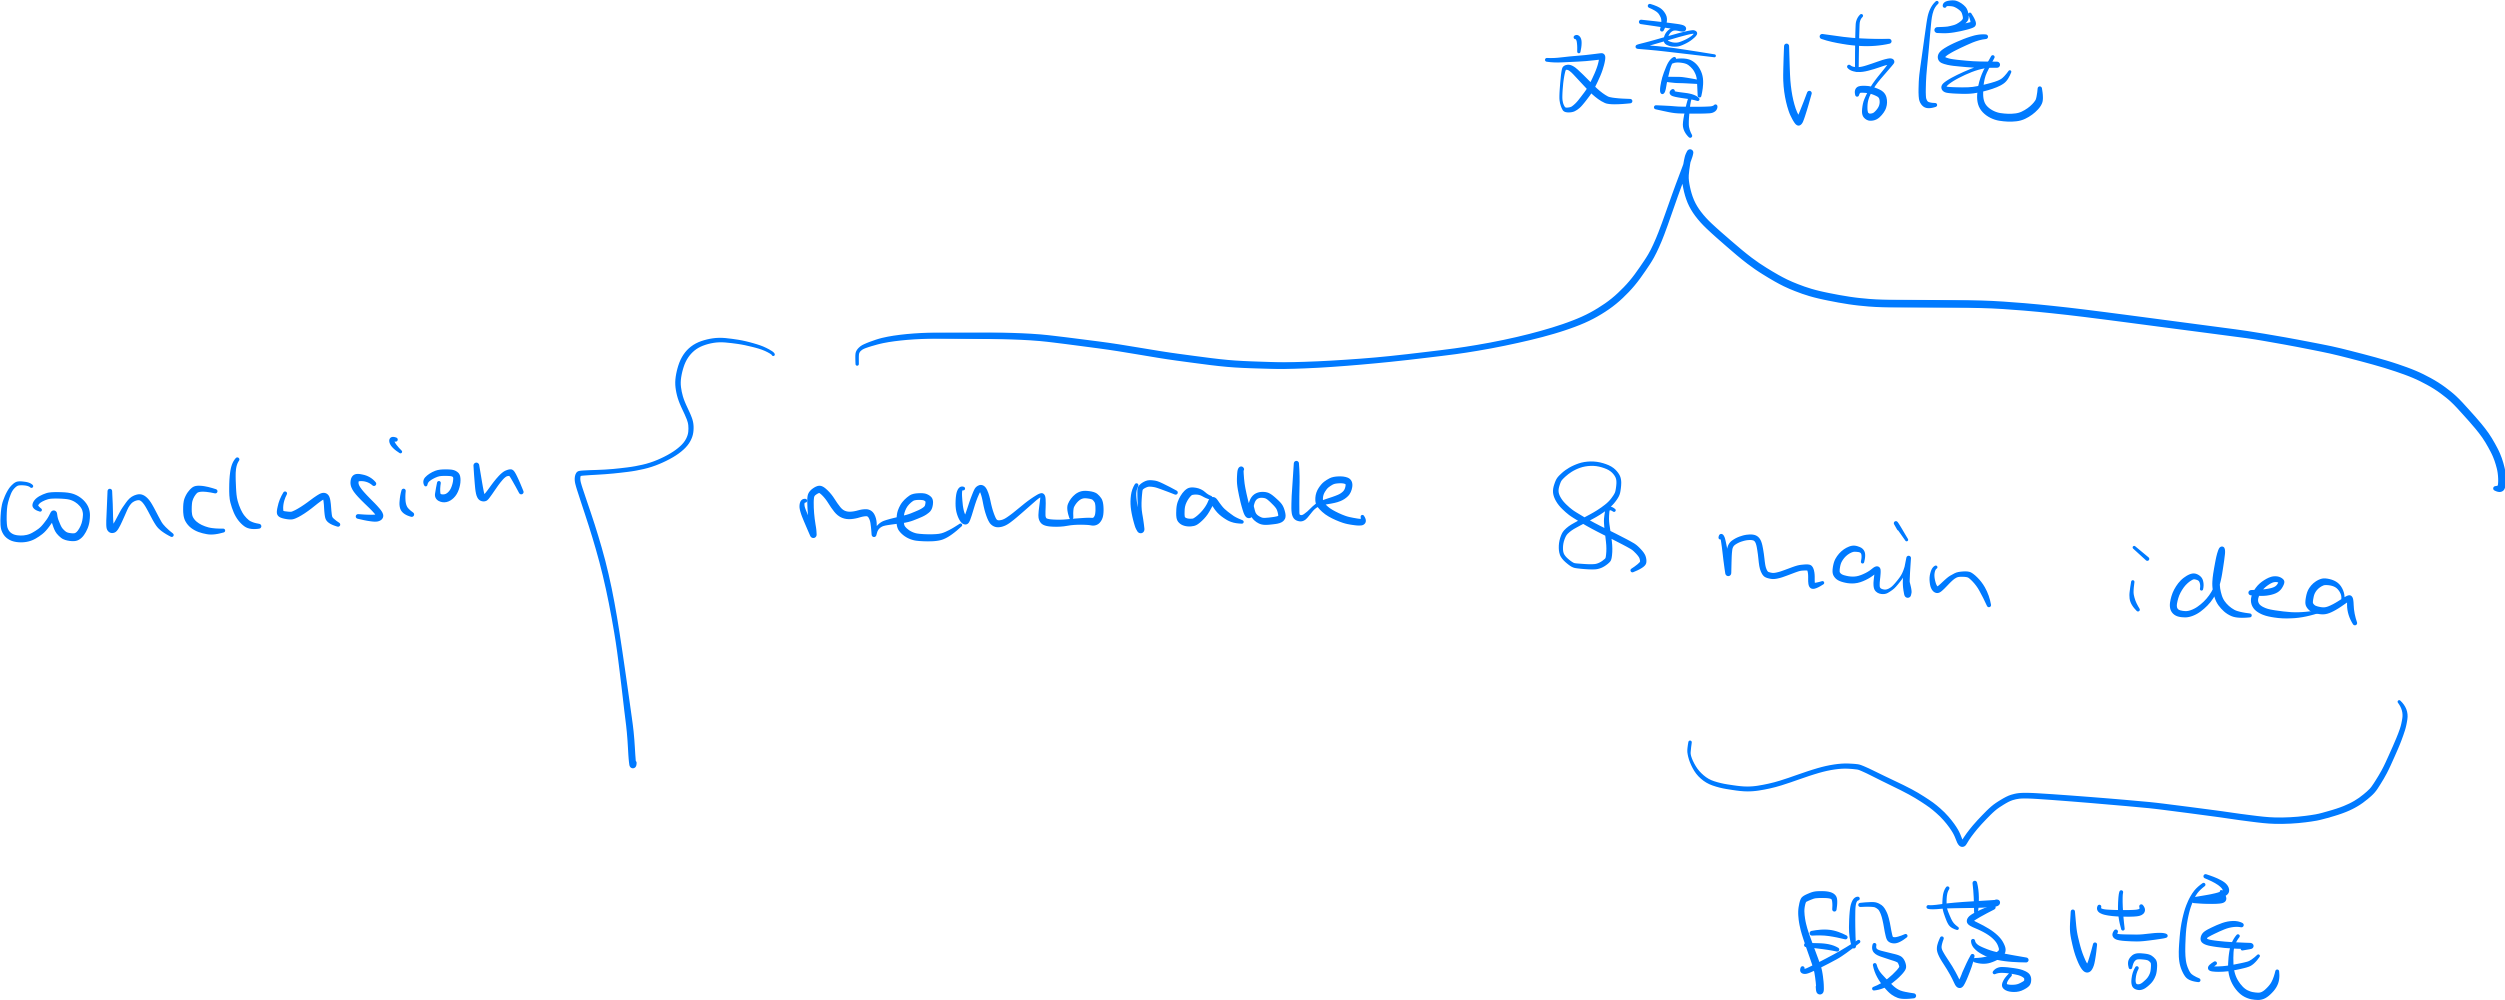 文章结尾
conclusion
memorable & main idea
段落结尾